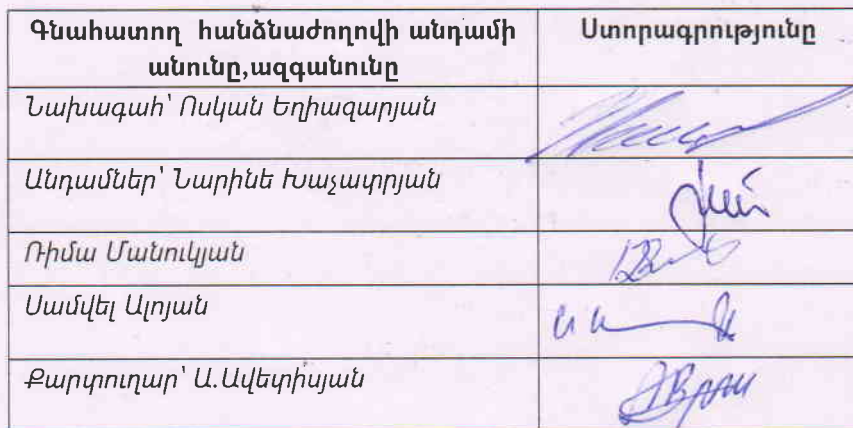 Գնահատող հանձնաժողովի անդամի Ստորագրությունը
անունը,ազգանունը
Նախագահ՝ Ոսկան Եղիազարյան
Անդամներ՝ Նարինե Խաչատրյան
Ռիմա Մանուկյան
Սամվել Ալոյան
Քարտուղար՝ Ա.Ավետիսյան